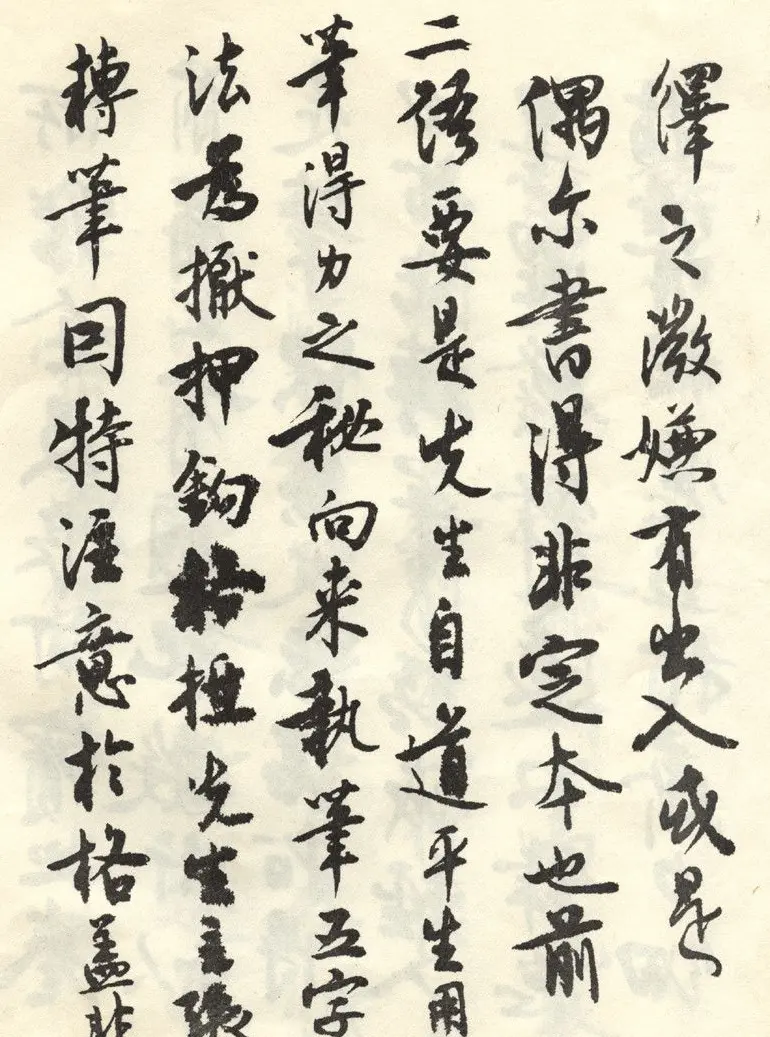 繹之微嫌有出入或是
偶尔書得非定本也前
二语要是先生自道平生用
筆得力之秘向来執筆五字
法為擫押鈎格抵先生主張
轉筆因特注意於格盖非